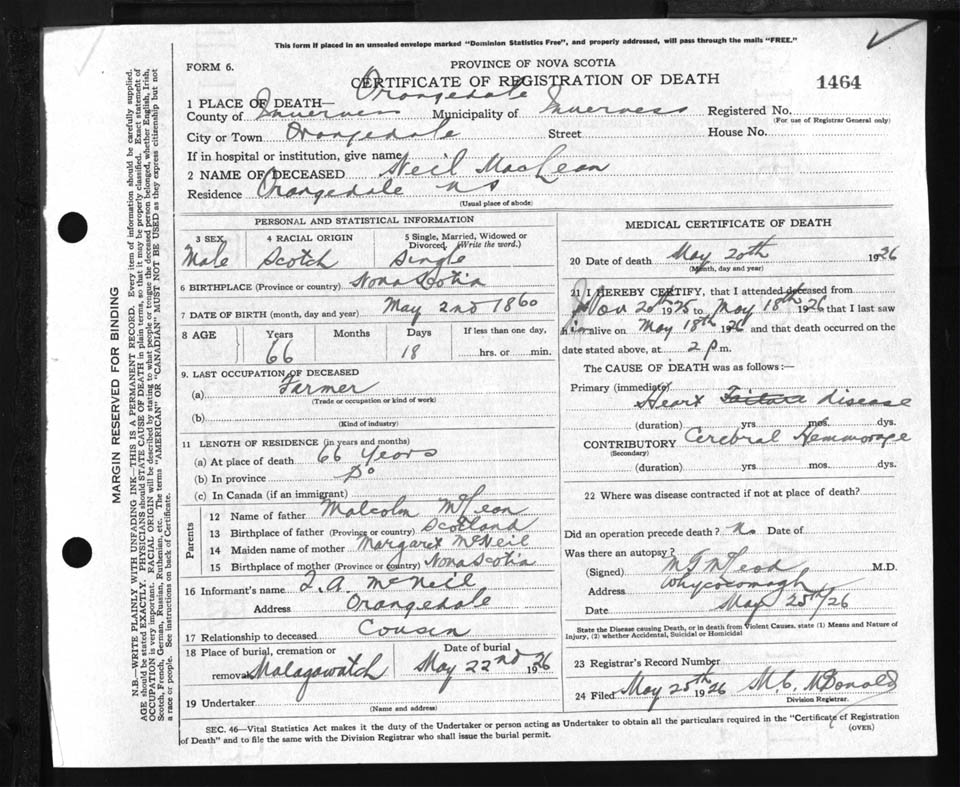 This form if placed in an unsealed envelope marked "Dominion Statistics Free", and properly addressed, will pass through the mails "FREE."
FORM 6.
PROVINCE OF NOVA SCOTIA
CERTIFICATE OF REGISTRATION OF DEATH
1464
1 PLACE OF DEATH— Orangedale
County of Inverness Municipality of Inverness Registered No.
(For use of Registrar General only)
City or Town Orangedale Street House No.
If in hospital or institution, give name
2 NAME OF DECEASED Neil MacLean
Residence Orangedale NS
(Usual place of abode)
MARGIN RESERVED FOR BINDING
N.B.—WRITE PLAINLY WITH UNFADING INK—THIS IS A PERMANENT RECORD. Every item of information should be carefully supplied.
AGE should be stated EXACTLY. PHYSICIANS should STATE CAUSE OF DEATH in plain terms, so that it may be properly classified. Exact statement of
OCCUPATION is very important. RACIAL ORIGIN will be described by stating to what people or tongue the deceased person belonged, whether English, Irish,
Scotch, French, German, Russian, Ruthenian, etc. The terms "AMERICAN" OR "CANADIAN" MUST NOT BE USED as they express citizenship but not
a race or people. See instructions on back of Certificate.
PERSONAL AND STATISTICAL INFORMATION
3 SEX
Male
4 RACIAL ORIGIN
Scotch
5 Single, Married, Widowed or
Divorced. (Write the word.)
Single
6 BIRTHPLACE (Province or country) Nova Scotia
7 DATE OF BIRTH (month, day and year) May 2nd 1860
8 AGE Years Months Days If less than one day,
66 18 hrs. or min.
9. LAST OCCUPATION OF DECEASED
(a) Farmer
(Trade or occupation or kind of work)
(b)
(Kind of industry)
11 LENGTH OF RESIDENCE (in years and months)
(a) At place of death 66 Years
(b) In province Do
(c) In Canada (if an immigrant)
Parents
12 Name of father Malcolm McLean
13 Birthplace of father (Province or country) Scotland
14 Maiden name of mother Margaret McNeil
15 Birthplace of mother (Province or country) Nova Scotia
16 Informant's name A McNeil
Address Orangedale
17 Relationship to deceased Cousin
18 Place of burial, cremation or Date of burial
removal Malagawatch May 22nd 1926
19 Undertaker
(Name and address)
MEDICAL CERTIFICATE OF DEATH
20 Date of death May 20th 1926
(Month, day and year)
21 I HEREBY CERTIFY, that I attended deceased from
Nov 20th 1925 to May 18th 1926 that I last saw
him alive on May 18th 1926 and that death occurred on the
date stated above, at 2 p.m.
The CAUSE OF DEATH was as follows:—
Primary (immediate)
Heart Failure disease
(duration) yrs. mos. dys.
CONTRIBUTORY Cerebral Hemmorage
(Secondary)
(duration) yrs. mos. dys.
22 Where was disease contracted if not at place of death?
Did an operation precede death? No Date of
Was there an autopsy?
(Signed) McLeod M.D.
Address Whycocomagh
Date May 25th/26
State the Disease causing Death, or in death from Violent Causes, state (1) Means and Nature of
Injury, (2) whether Accidental, Suicidal or Homicidal
23 Registrar's Record Number
24 Filed May 25th 1926 M.C. McDonald
Division Registrar.
SEC. 46—Vital Statistics Act makes it the duty of the Undertaker or person acting as Undertaker to obtain all the particulars required in the "Certificate of Registration
of Death" and to file the same with the Division Registrar who shall issue the burial permit.
(OVER)